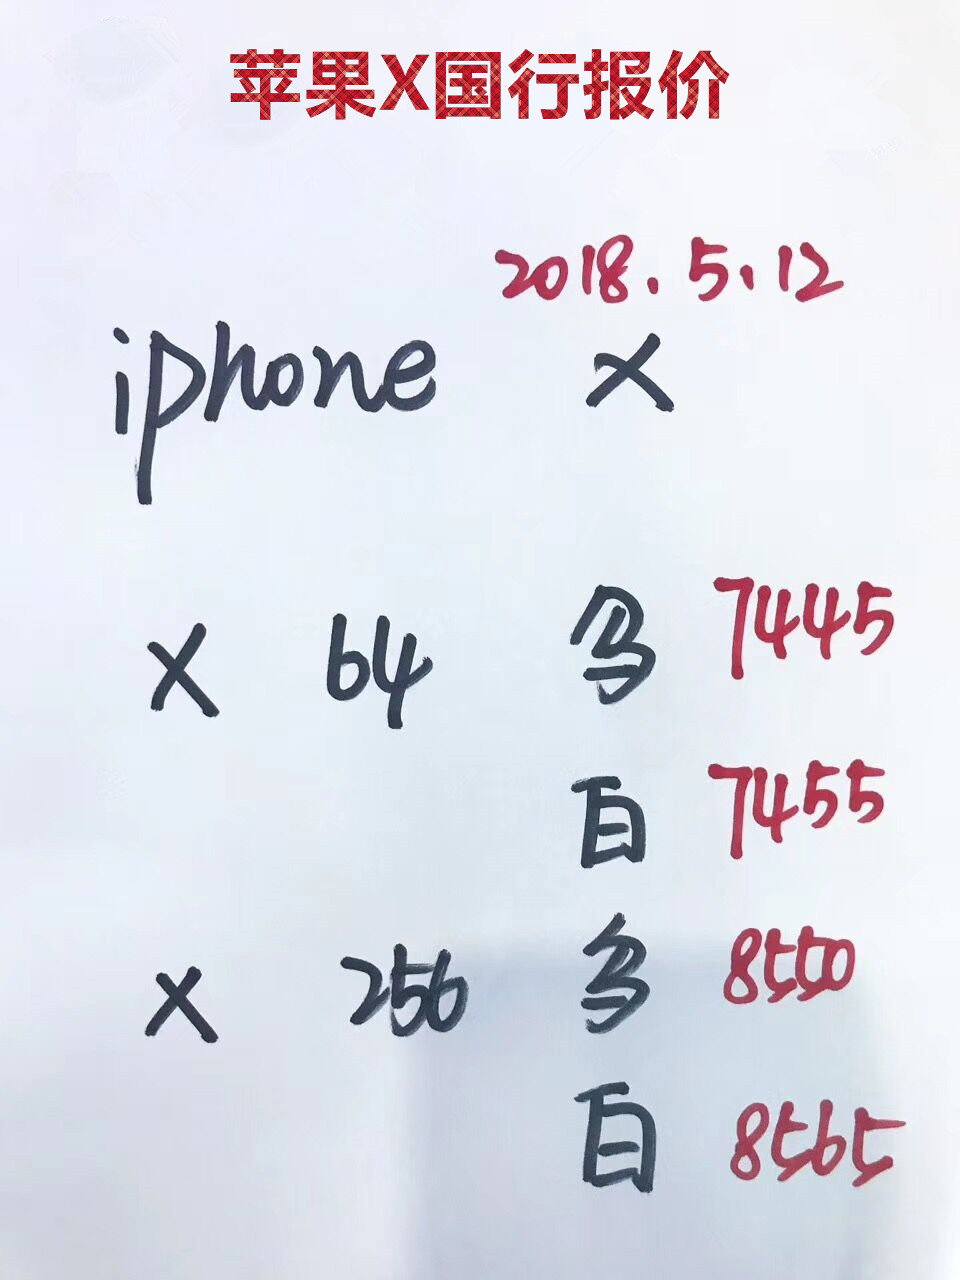 苹果X国行报价
2018.5.12
iphone X
X 64 7445
白 7455
X 256 8550
白 8565